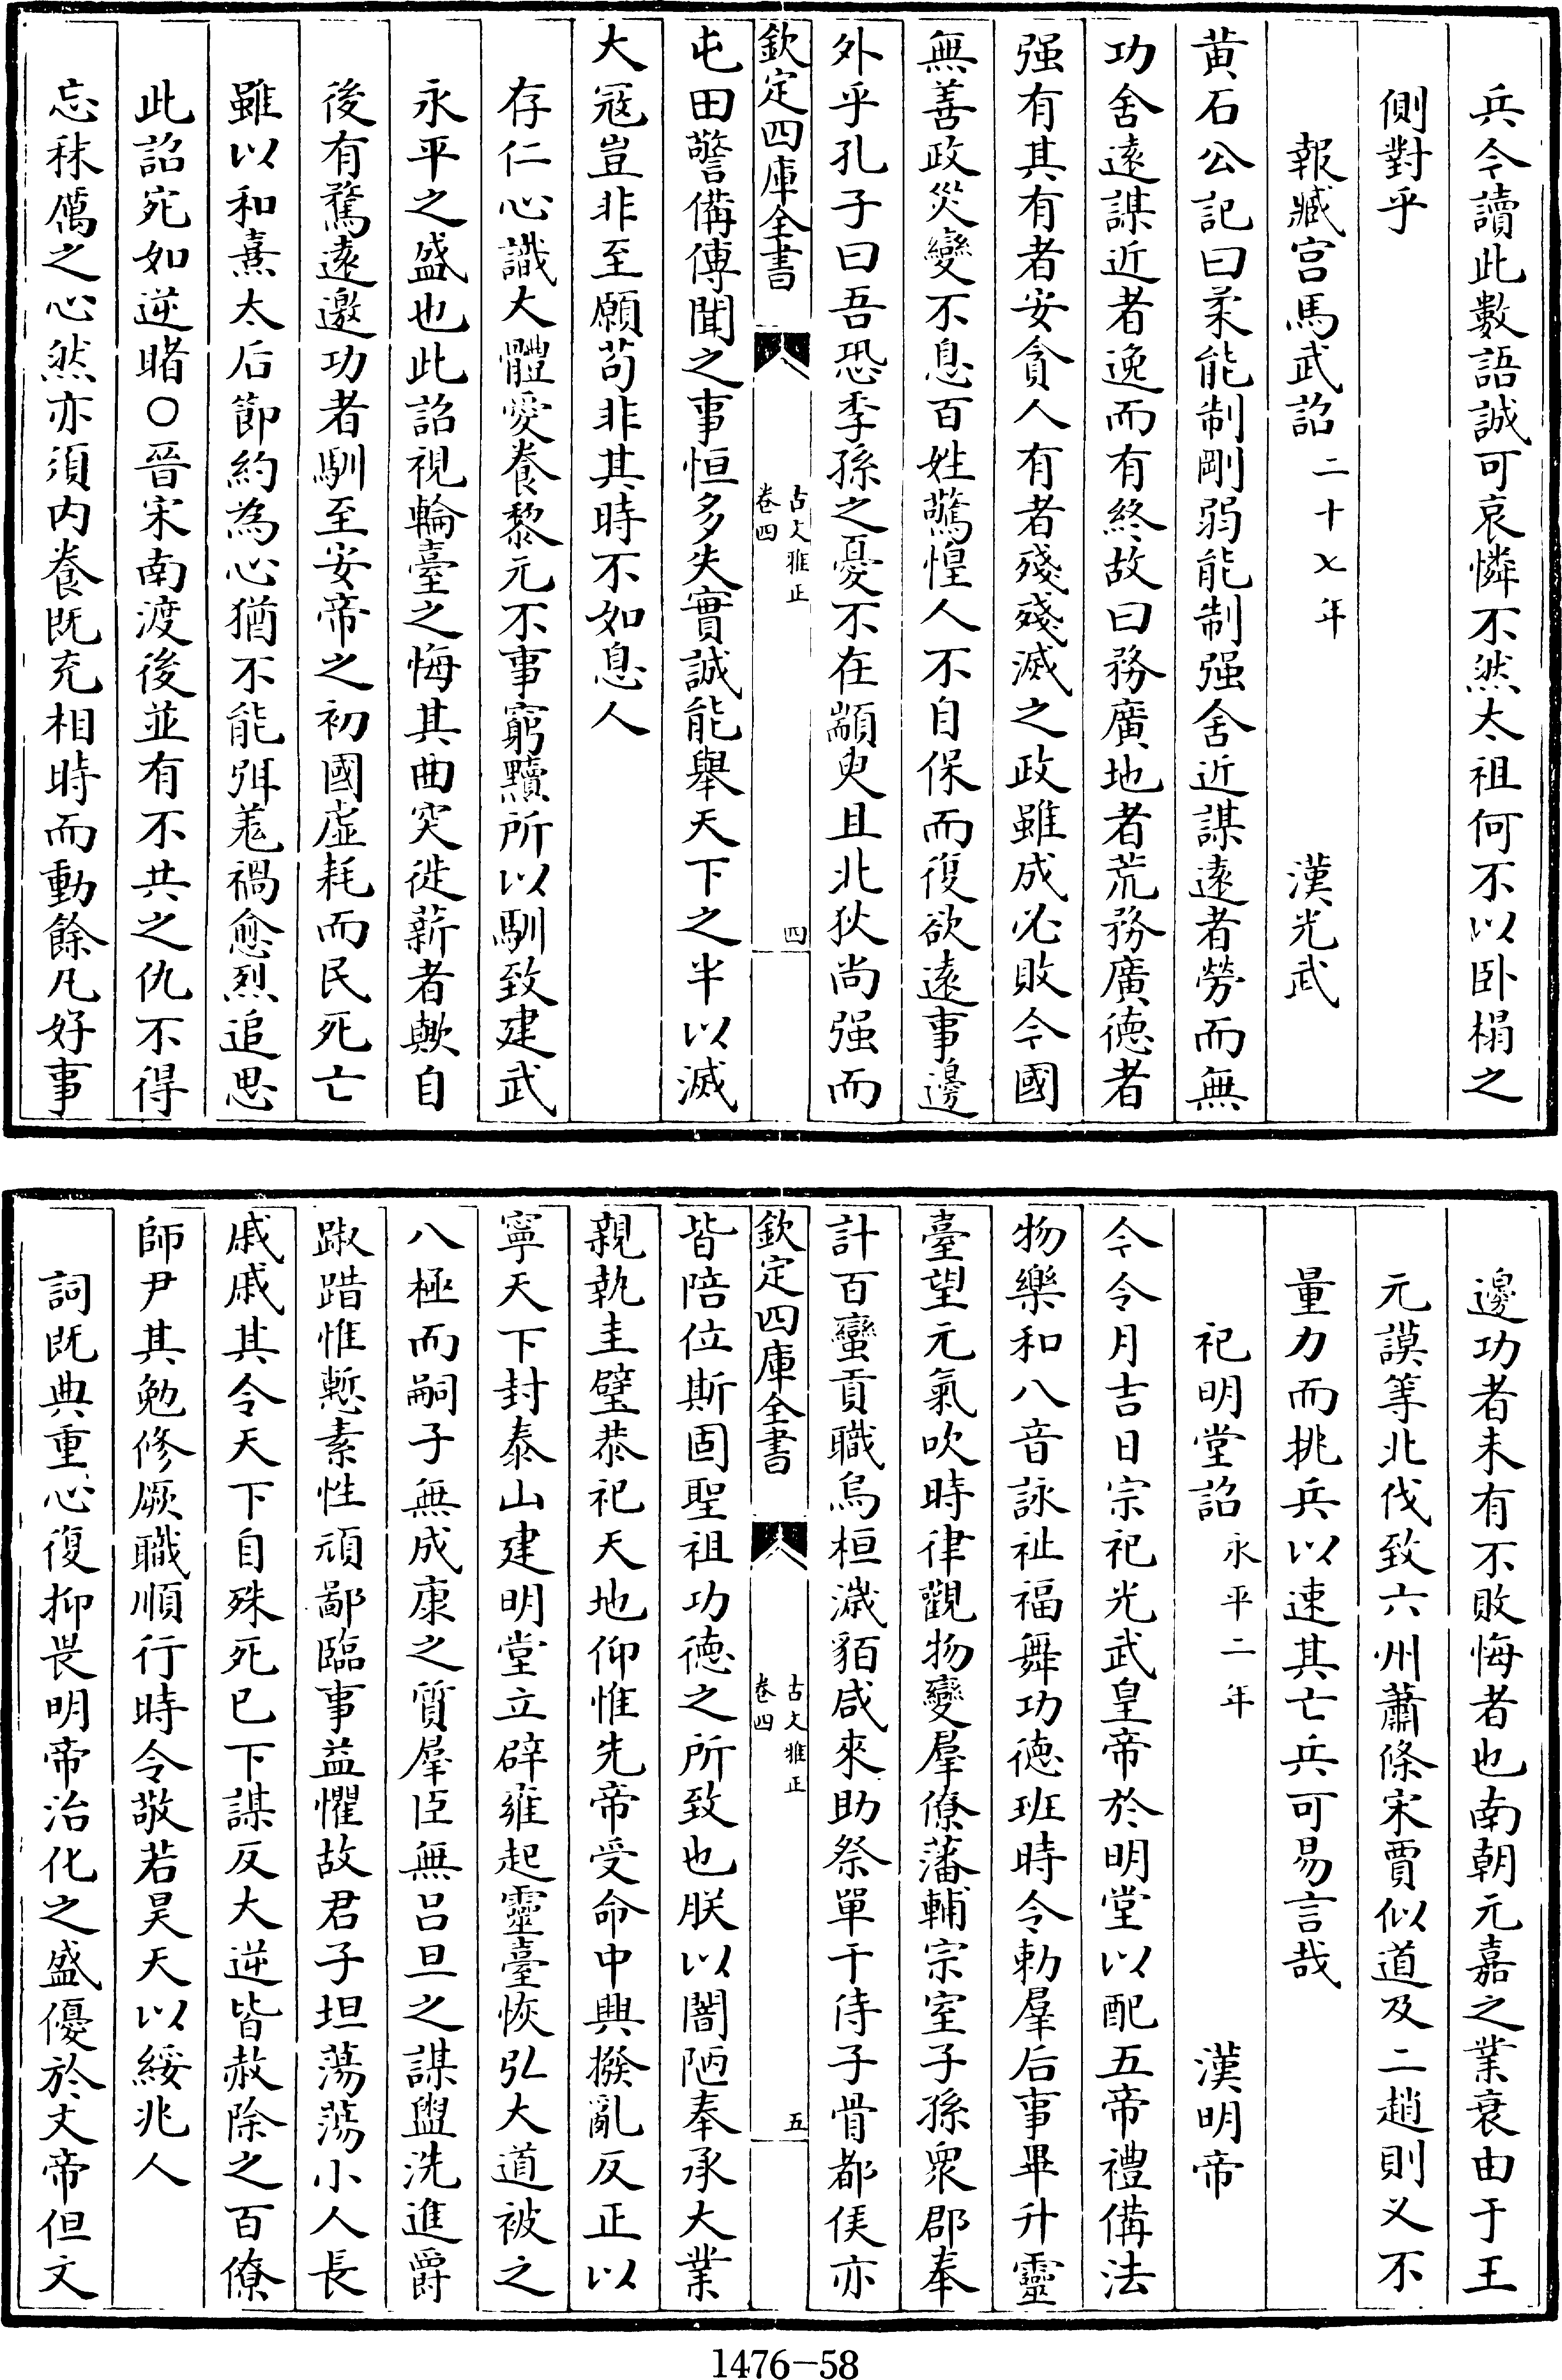 兵今讀此數語誠可哀憐不然太祖何不以卧榻之
側對乎
報臧宫馬武詔二十七年　漢光武
黄石公記曰柔能制剛弱能制强舍近謀逺者勞而無
功舍逺謀近者逸而有終故曰務廣地者荒務廣徳者
强有其有者安貪人有者殘殘滅之政雖成必敗今國
無善政災變不息百姓驚惶人不自保而復欲逺事邊
外乎孔子曰吾恐季孫之憂不在顓臾且北狄尚强而
欽定四庫全書　古文雅正　卷四　四
屯田警備傳聞之事恒多失實誠能舉天下之半以滅
大寇豈非至願苟非其時不如息人
存仁心識大體愛養黎元不事窮黷所以馴致建武
永平之盛也此詔視輪臺之悔其曲突徙薪者歟自
後有騖逺邀功者馴至安帝之初國虛耗而民死亡
雖以和熹太后節約為心猶不能弭羌禍愈烈追思
此詔宛如逆睹○晉宋南渡後並有不共之仇不得
忘秣厲之心然亦須内養既充相時而動餘凡好事
邊功者未有不敗悔者也南朝元嘉之業衰由于王
元謨等北伐致六州蕭條宋賈似道及二趙則又不
量力而挑兵以速其亡兵可易言哉
祀明堂詔永平二年　漢明帝
今令月吉日宗祀光武皇帝於明堂以配五帝禮備法
物樂和八音詠祉福舞功徳班時令勅羣后事畢升靈
臺望元氣吹時律觀物變羣僚藩輔宗室子孫衆郡奉
計百蠻貢職烏桓濊貊咸來助祭單于侍子骨都侯亦
欽定四庫全書　古文雅正　卷四　五
皆陪位斯固聖祖功徳之所致也朕以闇陋奉承大業
親執圭璧恭祀天地仰惟先帝受命中興撥亂反正以
寧天下封泰山建明堂立辟雍起靈臺恢弘大道被之
八極而嗣子無成康之質羣臣無吕旦之謀盥洗進爵
踧踖惟慙素性頑鄙臨事益懼故君子坦蕩蕩小人長
戚戚其令天下自殊死已下謀反大逆皆赦除之百僚
師尹其勉修厥職順行時令敬若昊天以綏兆人
詞既典重心復抑畏明帝治化之盛優於文帝但文
1476-58